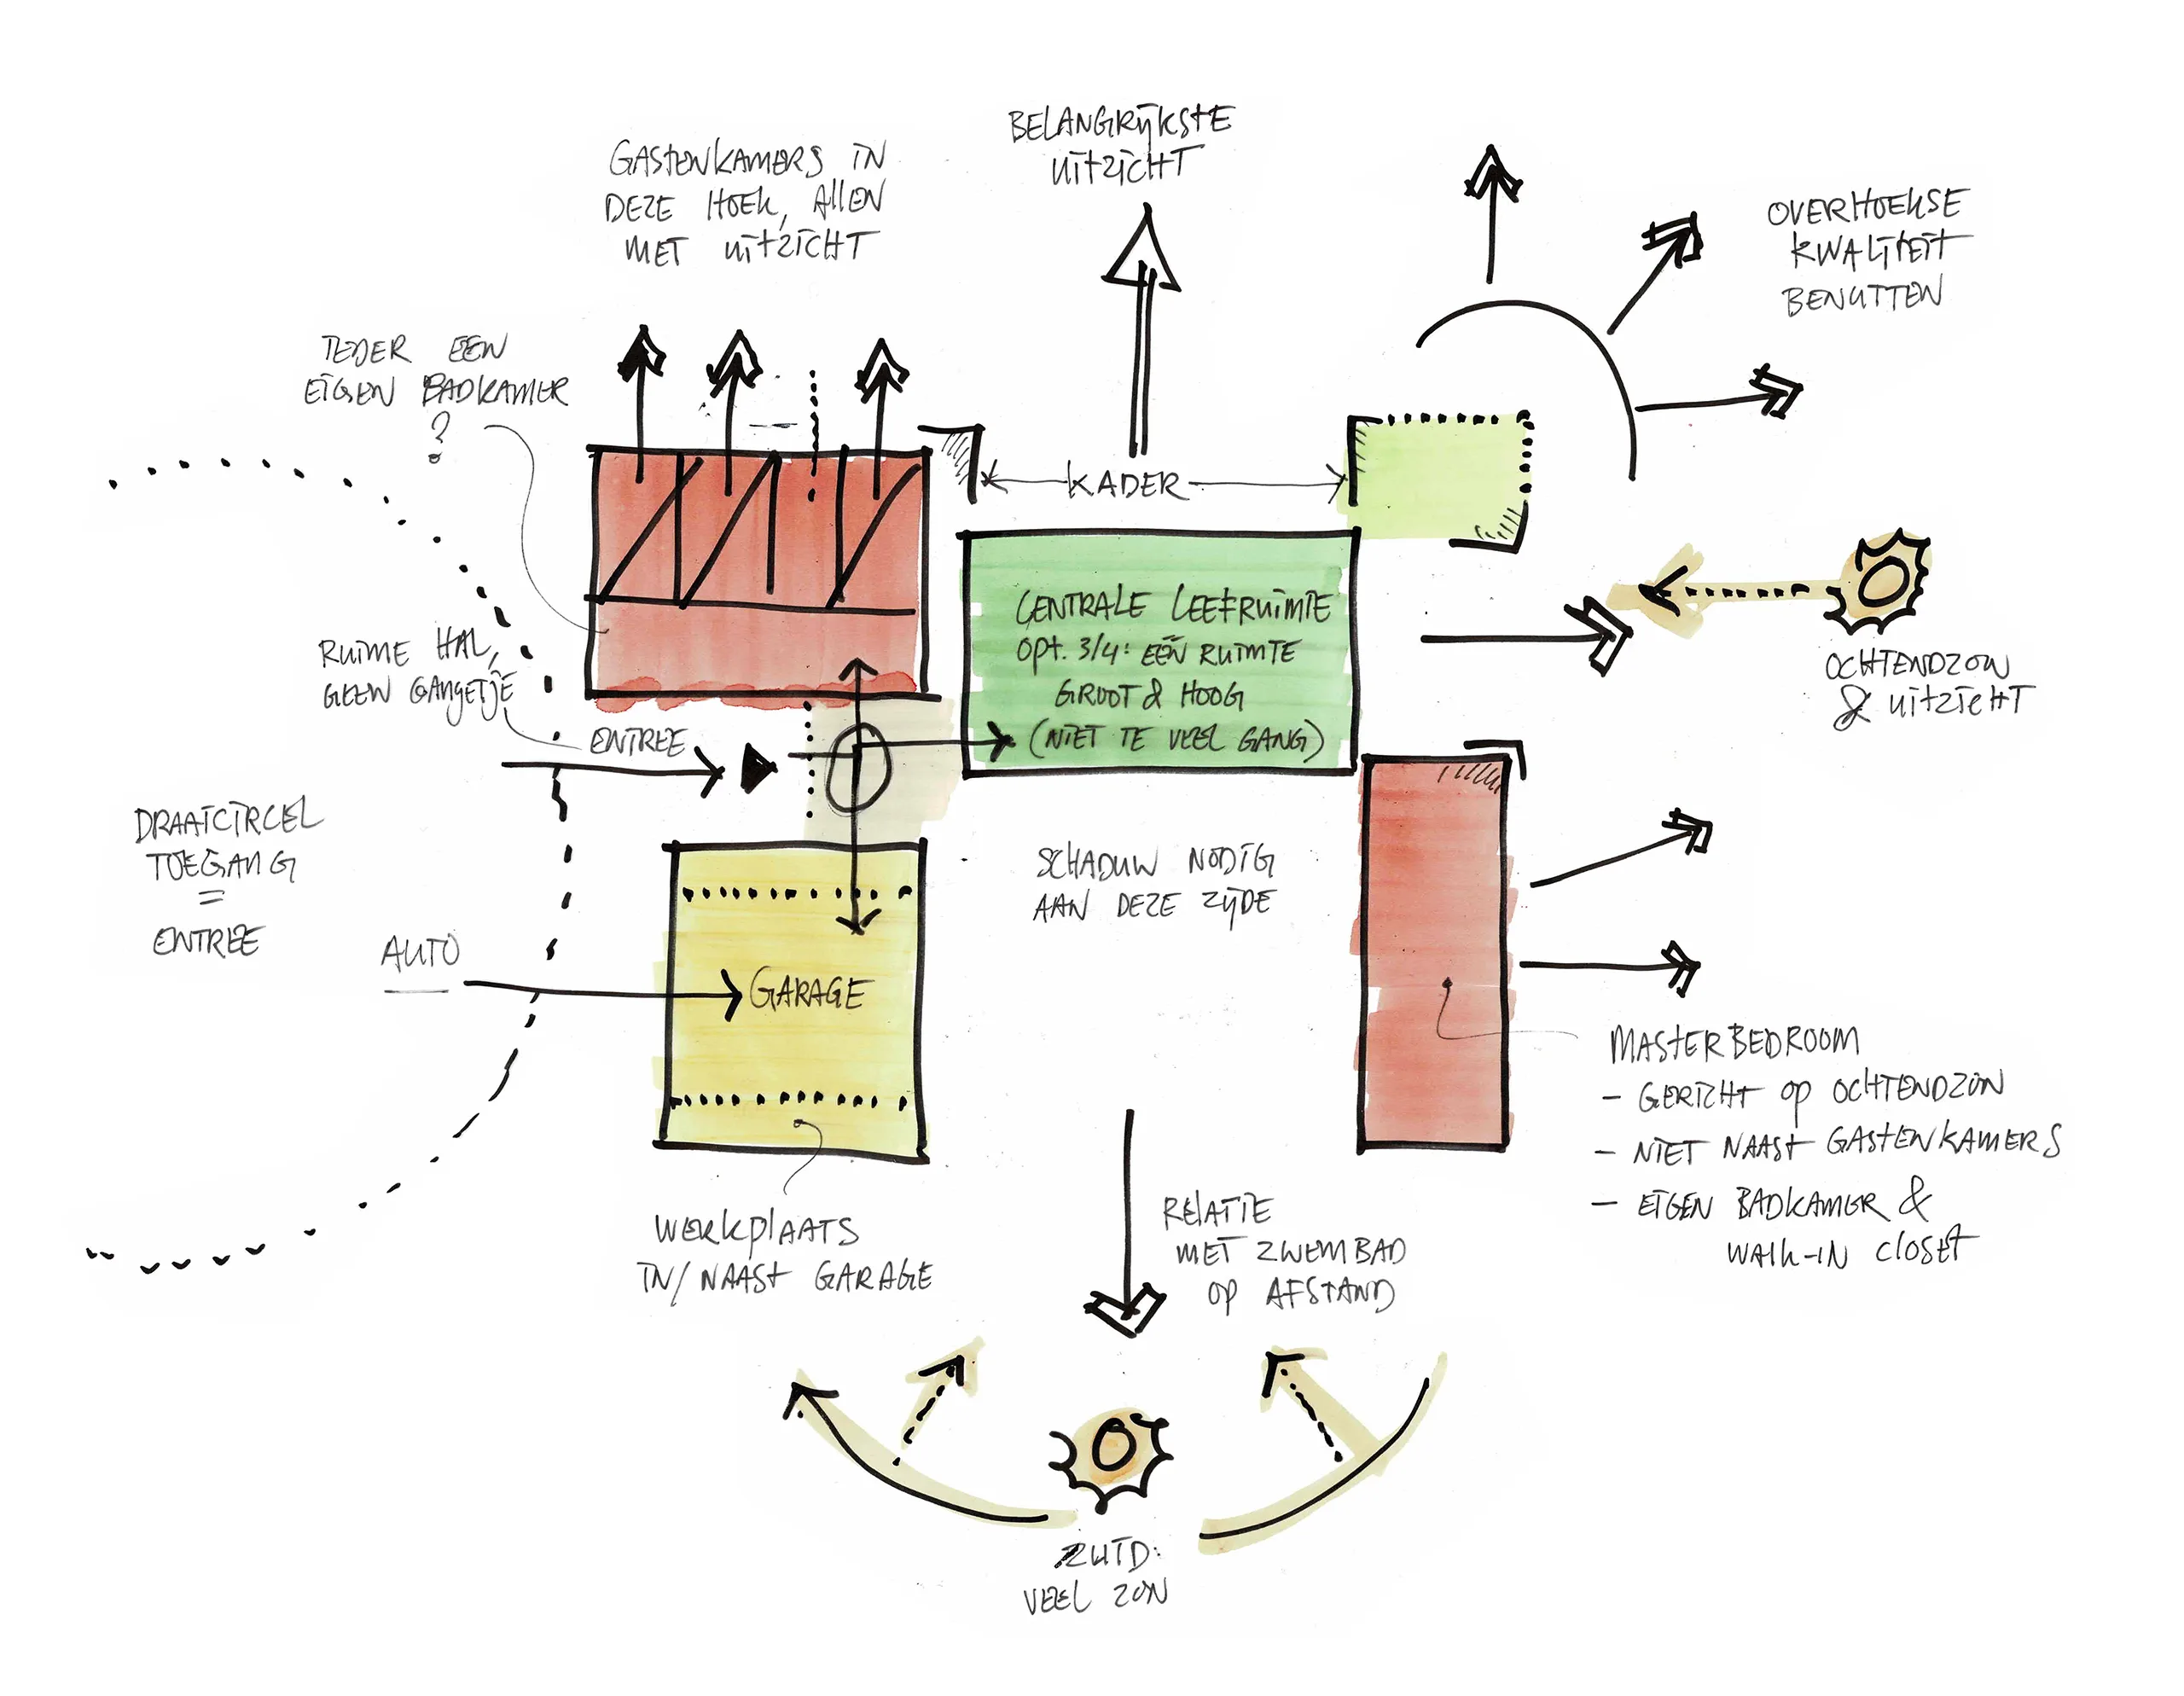 BELANGRIJKSTE
UITZICHT
GASTENKAMERS IN
DEZE HOEK, ALLEN
MET UITZICHT
OVERHOEKSE
KWALITEIT
BENUTTEN
IEDER EEN
EIGEN BADKAMER
?
KADER
CENTRALE LEEFRUIMTE
OPT. 3/4: EÉN RUIMTE
GROOT & HOOG
(NIET TE VEEL GANG)
OCHTENDZON
& UITZICHT
RUIME HAL,
GEEN GANGETJE
ENTREE
DRAAICIRCEL
TOEGANG
=
ENTREE
SCHADUW NODIG
AAN DEZE ZIJDE
AUTO
GARAGE
MASTERBEDROOM
- GERICHT OP OCHTENDZON
- NIET NAAST GASTENKAMERS
- EIGEN BADKAMER &
WALK-IN CLOSET
WERKPLAATS
IN/NAAST GARAGE
RELATIE
MET ZWEMBAD
OP AFSTAND
ZUID:
VEEL ZON